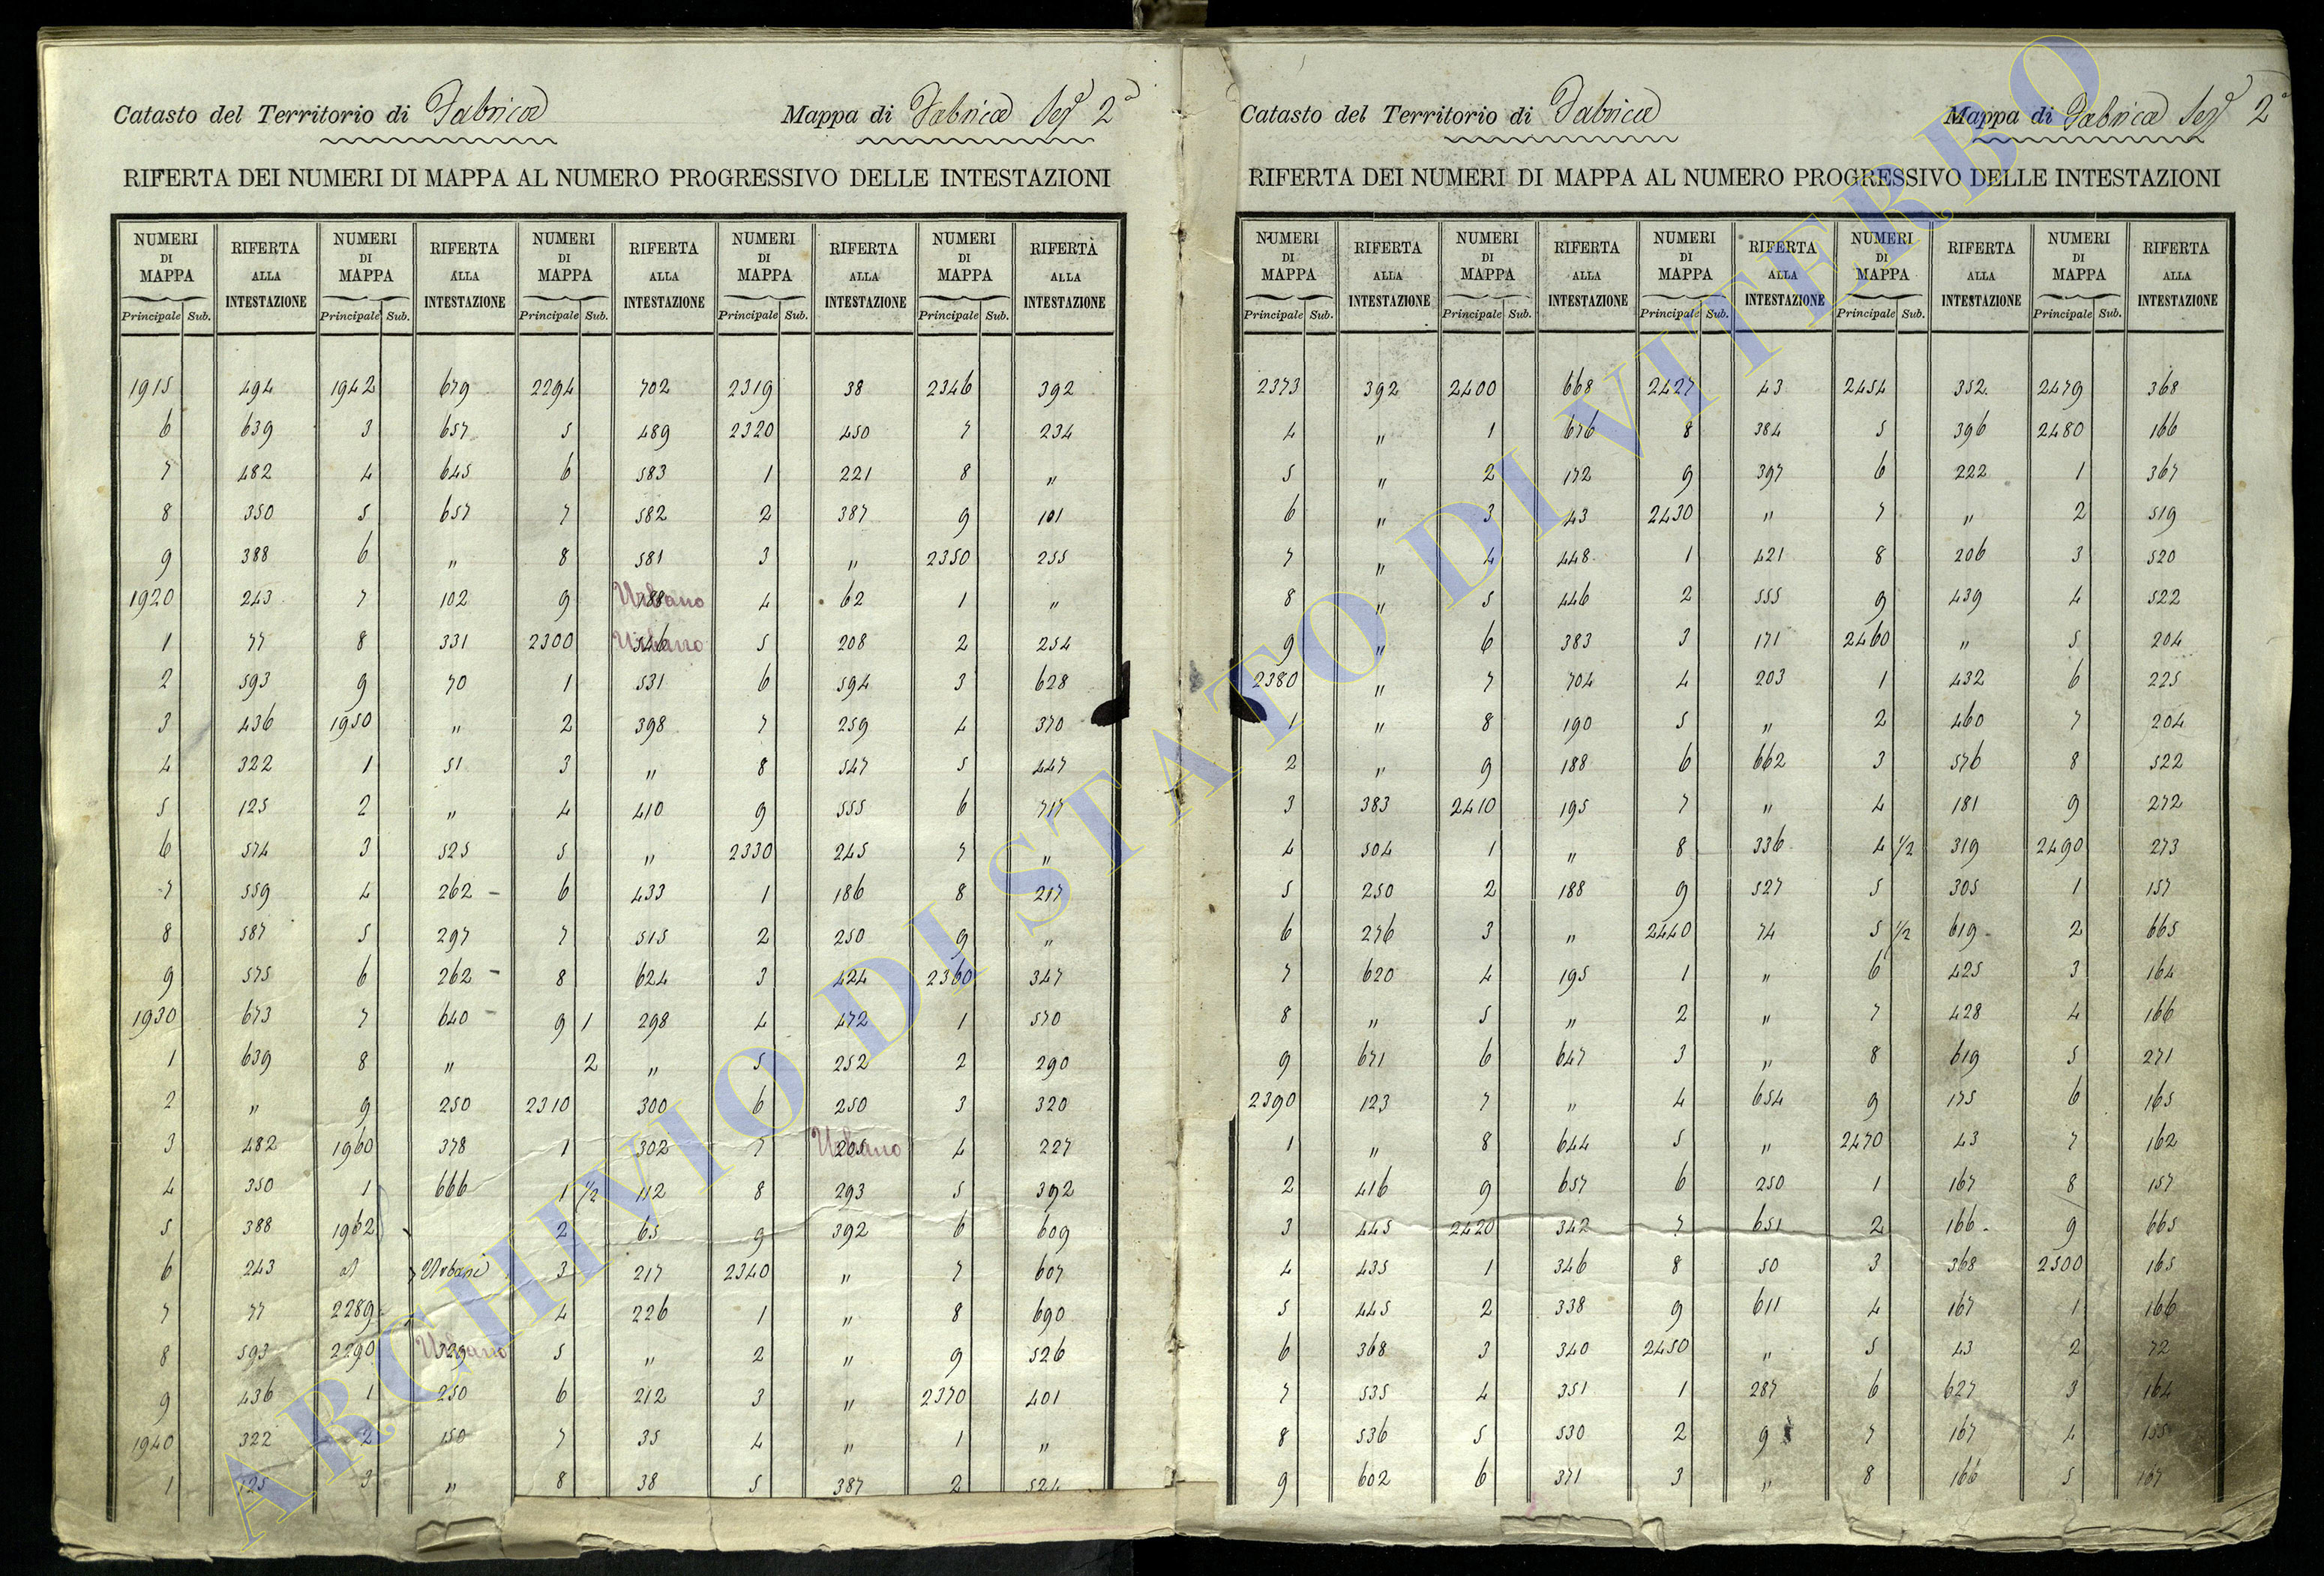 Catasto del Territorio di Fabrica Mappa di Fabrica Sez.e 2a
RIFERTA DEI NUMERI DI MAPPA AL NUMERO PROGRESSIVO DELLE INTESTAZIONI
NUMERI DI MAPPA RIFERTA ALLA INTESTAZIONE NUMERI DI MAPPA RIFERTA ALLA INTESTAZIONE NUMERI DI MAPPA RIFERTA ALLA INTESTAZIONE NUMERI DI MAPPA RIFERTA ALLA INTESTAZIONE NUMERI DI MAPPA RIFERTA ALLA INTESTAZIONE
Principale Sub. Principale Sub. Principale Sub. Principale Sub. Principale Sub.
1915 494 1942 679 2294 702 2319 38 2346 392
6 639 3 657 5 489 2320 450 7 234
7 482 4 645 6 583 1 221 8 "
8 350 5 657 7 582 2 387 9 101
9 388 6 " 8 581 3 " 2350 255
1920 243 7 102 9 Urbano 4 62 1 "
1 77 8 331 2300 Urbano 5 208 2 254
2 593 9 70 1 531 6 594 3 628
3 436 1950 " 2 398 7 259 4 370
4 322 1 51 3 " 8 547 5 447
5 125 2 " 4 410 9 555 6 717
6 574 3 525 5 " 2330 245 7 "
7 559 4 262 - 6 433 1 186 8 217
8 587 5 297 7 515 2 250 9 "
9 575 6 262 - 8 624 3 424 2360 347
1930 673 7 640 - 9 1 298 4 472 1 570
1 639 8 " 2 " 5 252 2 290
2 " 9 250 2310 300 6 250 3 320
3 482 1960 378 1 302 7 Urbano 4 227
4 350 1 666 1 1/2 112 8 293 5 392
5 388 1962 2 65 9 392 6 609
6 243 al Urbani 3 217 2340 " 7 607
7 77 2289 4 226 1 " 8 690
8 593 2290 Urbano 5 " 2 " 9 526
9 436 1 250 6 212 3 " 2370 401
1940 322 2 150 7 35 4 " 1 "
1 125 3 " 8 38 5 387 2 524
Catasto del Territorio di Fabrica Mappa di Fabrica Sez.e 2a
RIFERTA DEI NUMERI DI MAPPA AL NUMERO PROGRESSIVO DELLE INTESTAZIONI
NUMERI DI MAPPA RIFERTA ALLA INTESTAZIONE NUMERI DI MAPPA RIFERTA ALLA INTESTAZIONE NUMERI DI MAPPA RIFERTA ALLA INTESTAZIONE NUMERI DI MAPPA RIFERTA ALLA INTESTAZIONE NUMERI DI MAPPA RIFERTA ALLA INTESTAZIONE
Principale Sub. Principale Sub. Principale Sub. Principale Sub. Principale Sub.
2373 392 2400 668 2427 43 2454 352 2479 368
4 " 1 676 8 384 5 396 2480 166
5 " 2 172 9 397 6 222 1 367
6 " 3 43 2430 " 7 " 2 519
7 " 4 448 1 421 8 206 3 520
8 " 5 446 2 555 9 439 4 522
9 " 6 383 3 171 2460 " 5 204
2380 " 7 704 4 203 1 432 6 225
1 " 8 190 5 " 2 460 7 204
2 " 9 188 6 662 3 576 8 522
3 383 2410 195 7 " 4 181 9 272
4 504 1 " 8 336 4 1/2 319 2490 273
5 250 2 188 9 527 5 305 1 157
6 276 3 " 2440 74 5 1/2 619 2 665
7 620 4 195 1 " 6 425 3 164
8 " 5 " 2 " 7 428 4 166
9 671 6 647 3 " 8 619 5 271
2390 123 7 " 4 654 9 175 6 165
1 " 8 644 5 " 2470 43 7 162
2 416 9 657 6 250 1 167 8 157
3 445 2420 342 7 651 2 166 9 665
4 435 1 346 8 50 3 368 2500 165
5 445 2 338 9 611 4 167 1 166
6 368 3 340 2450 " 5 43 2 72
7 535 4 351 1 287 6 627 3 164
8 536 5 530 2 9 7 167 4 155
9 602 6 371 3 " 8 166 5 167
ARCHIVIO DI STATO DI VITERBO